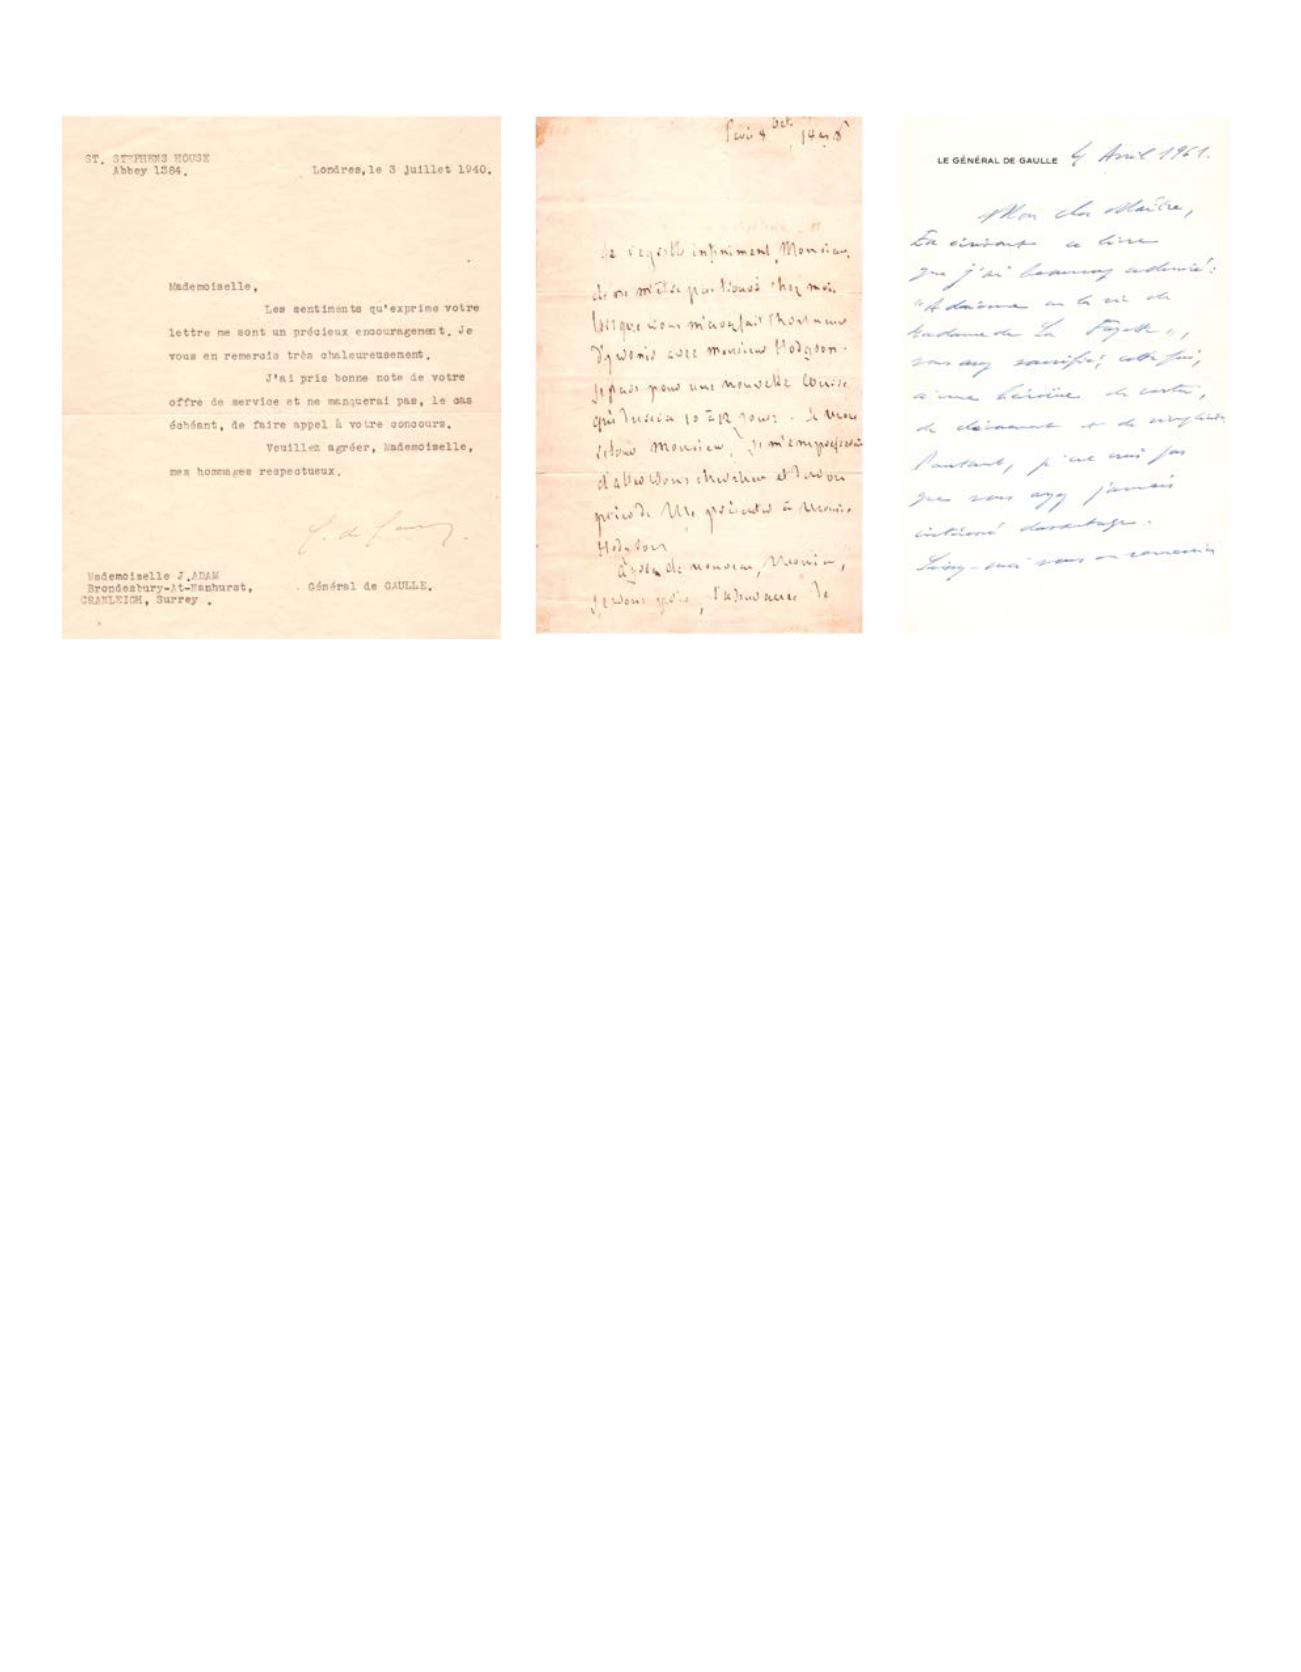 ST. STEPHENS HOUSE
Abbey 1384.
Londres, le 3 juillet 1940.
Mademoiselle,
Les sentiments qu'exprime votre
lettre me sont un précieux encouragement. Je
vous en remercie très chaleureusement.
J'ai pris bonne note de votre
offre de service et ne manquerai pas, le cas
échéant, de faire appel à votre concours.
Veuillez agréer, Mademoiselle,
mes hommages respectueux.
Mademoiselle J. ADAM
Brondesbury-At-Nanhurst,
CRANLEIGH, Surrey.
Général de GAULLE.
Je regrette infiniment, Monsieur,
de ne m'être pas trouvé chez moi
lorsque vous m'avez fait l'honneur
d'y venir avec monsieur Hodgson.
Je pars pour une nouvelle course
qui durera 10 à 12 jours.
retour Monsieur, je m'empresserai
d'aller vous chercher et
de me présenter à
Hodgson
de nouveau,
je vous prie, l'assurance de
LE GÉNÉRAL DE GAULLE 4 Avril 1961.
Mon cher Maître,
En écrivant ce livre
que j'ai beaucoup admiré :
"Adrienne ou la vie de
Madame de La Fayette",
vous avez sacrifié, cette fois,
à une héroïne de vertu,
de dévouement et de
Pourtant, je ne crois pas
que vous ayez jamais
intéressé davantage.
Laissez-moi vous en remercier